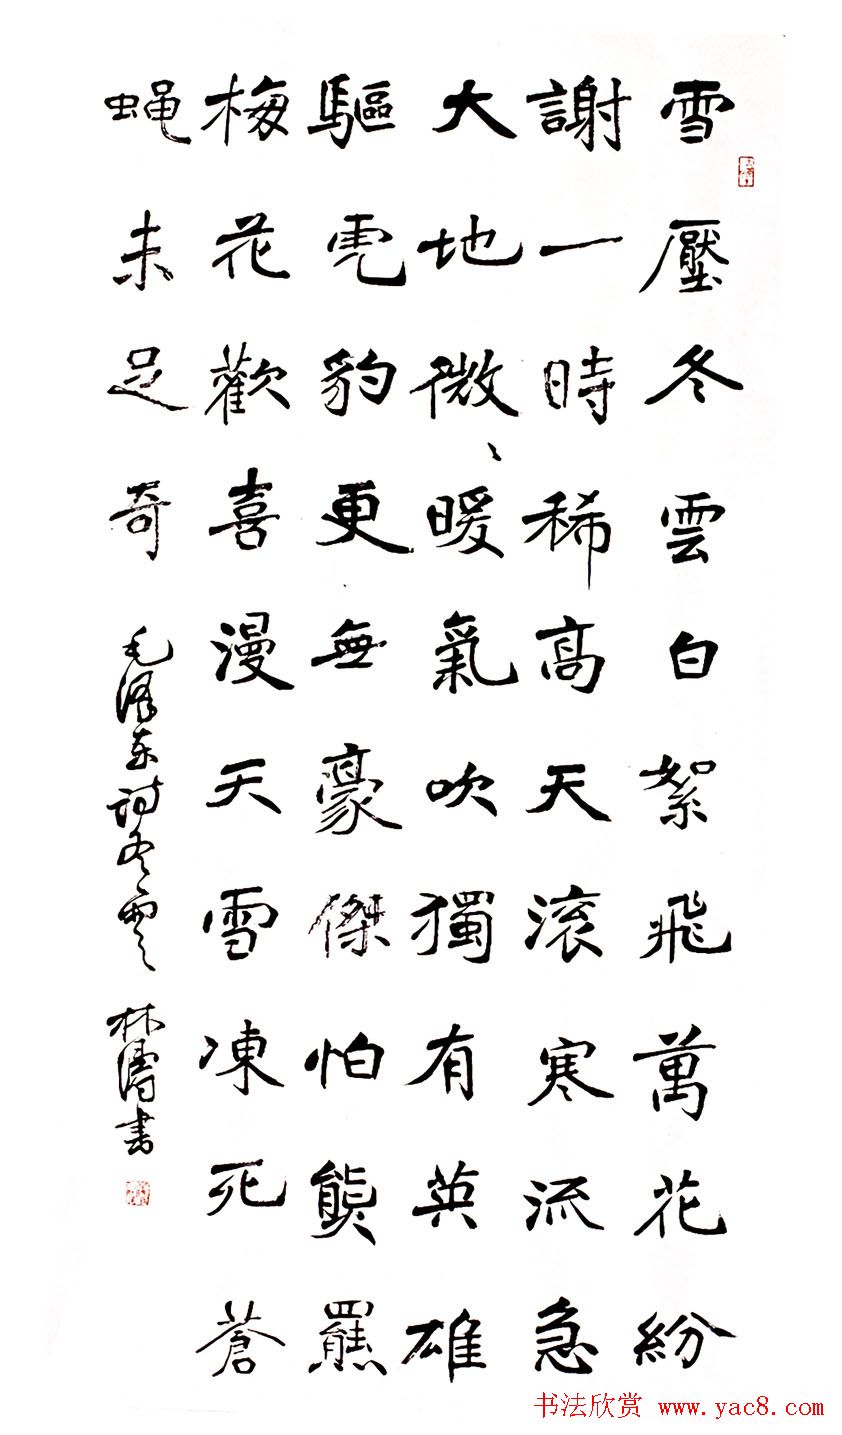 雪壓冬雲白絮飛萬花紛
謝一時稀高天滚寒流急
大地微〻暖氣吹獨有英雄
驅虎豹更無豪傑怕熊羆
梅花歡喜漫天雪凍死蒼
蝇未足奇 毛泽东诗冬雲 林濤書
书法欣赏 www.yac8.com